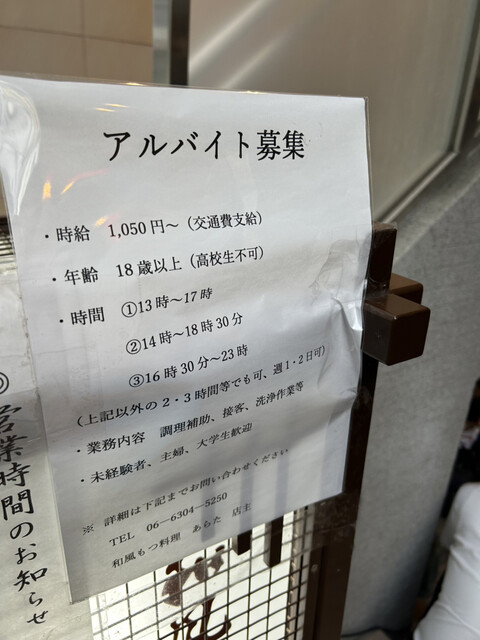 アルバイト募集
・時給 1,050円〜（交通費支給）
・年齢 18歳以上（高校生不可）
・時間 ①13時〜17時
②14時〜18時30分
③16時30分〜23時
（上記以外の2・3時間等でも可、週1・2日可）
・業務内容 調理補助、接客、洗浄作業等
・未経験者、主婦、大学生歓迎
※ 詳細は下記までお問い合わせください
TEL 06―6304―5250
和風もつ料理 あらた 店主
◎営業時間のお知らせ